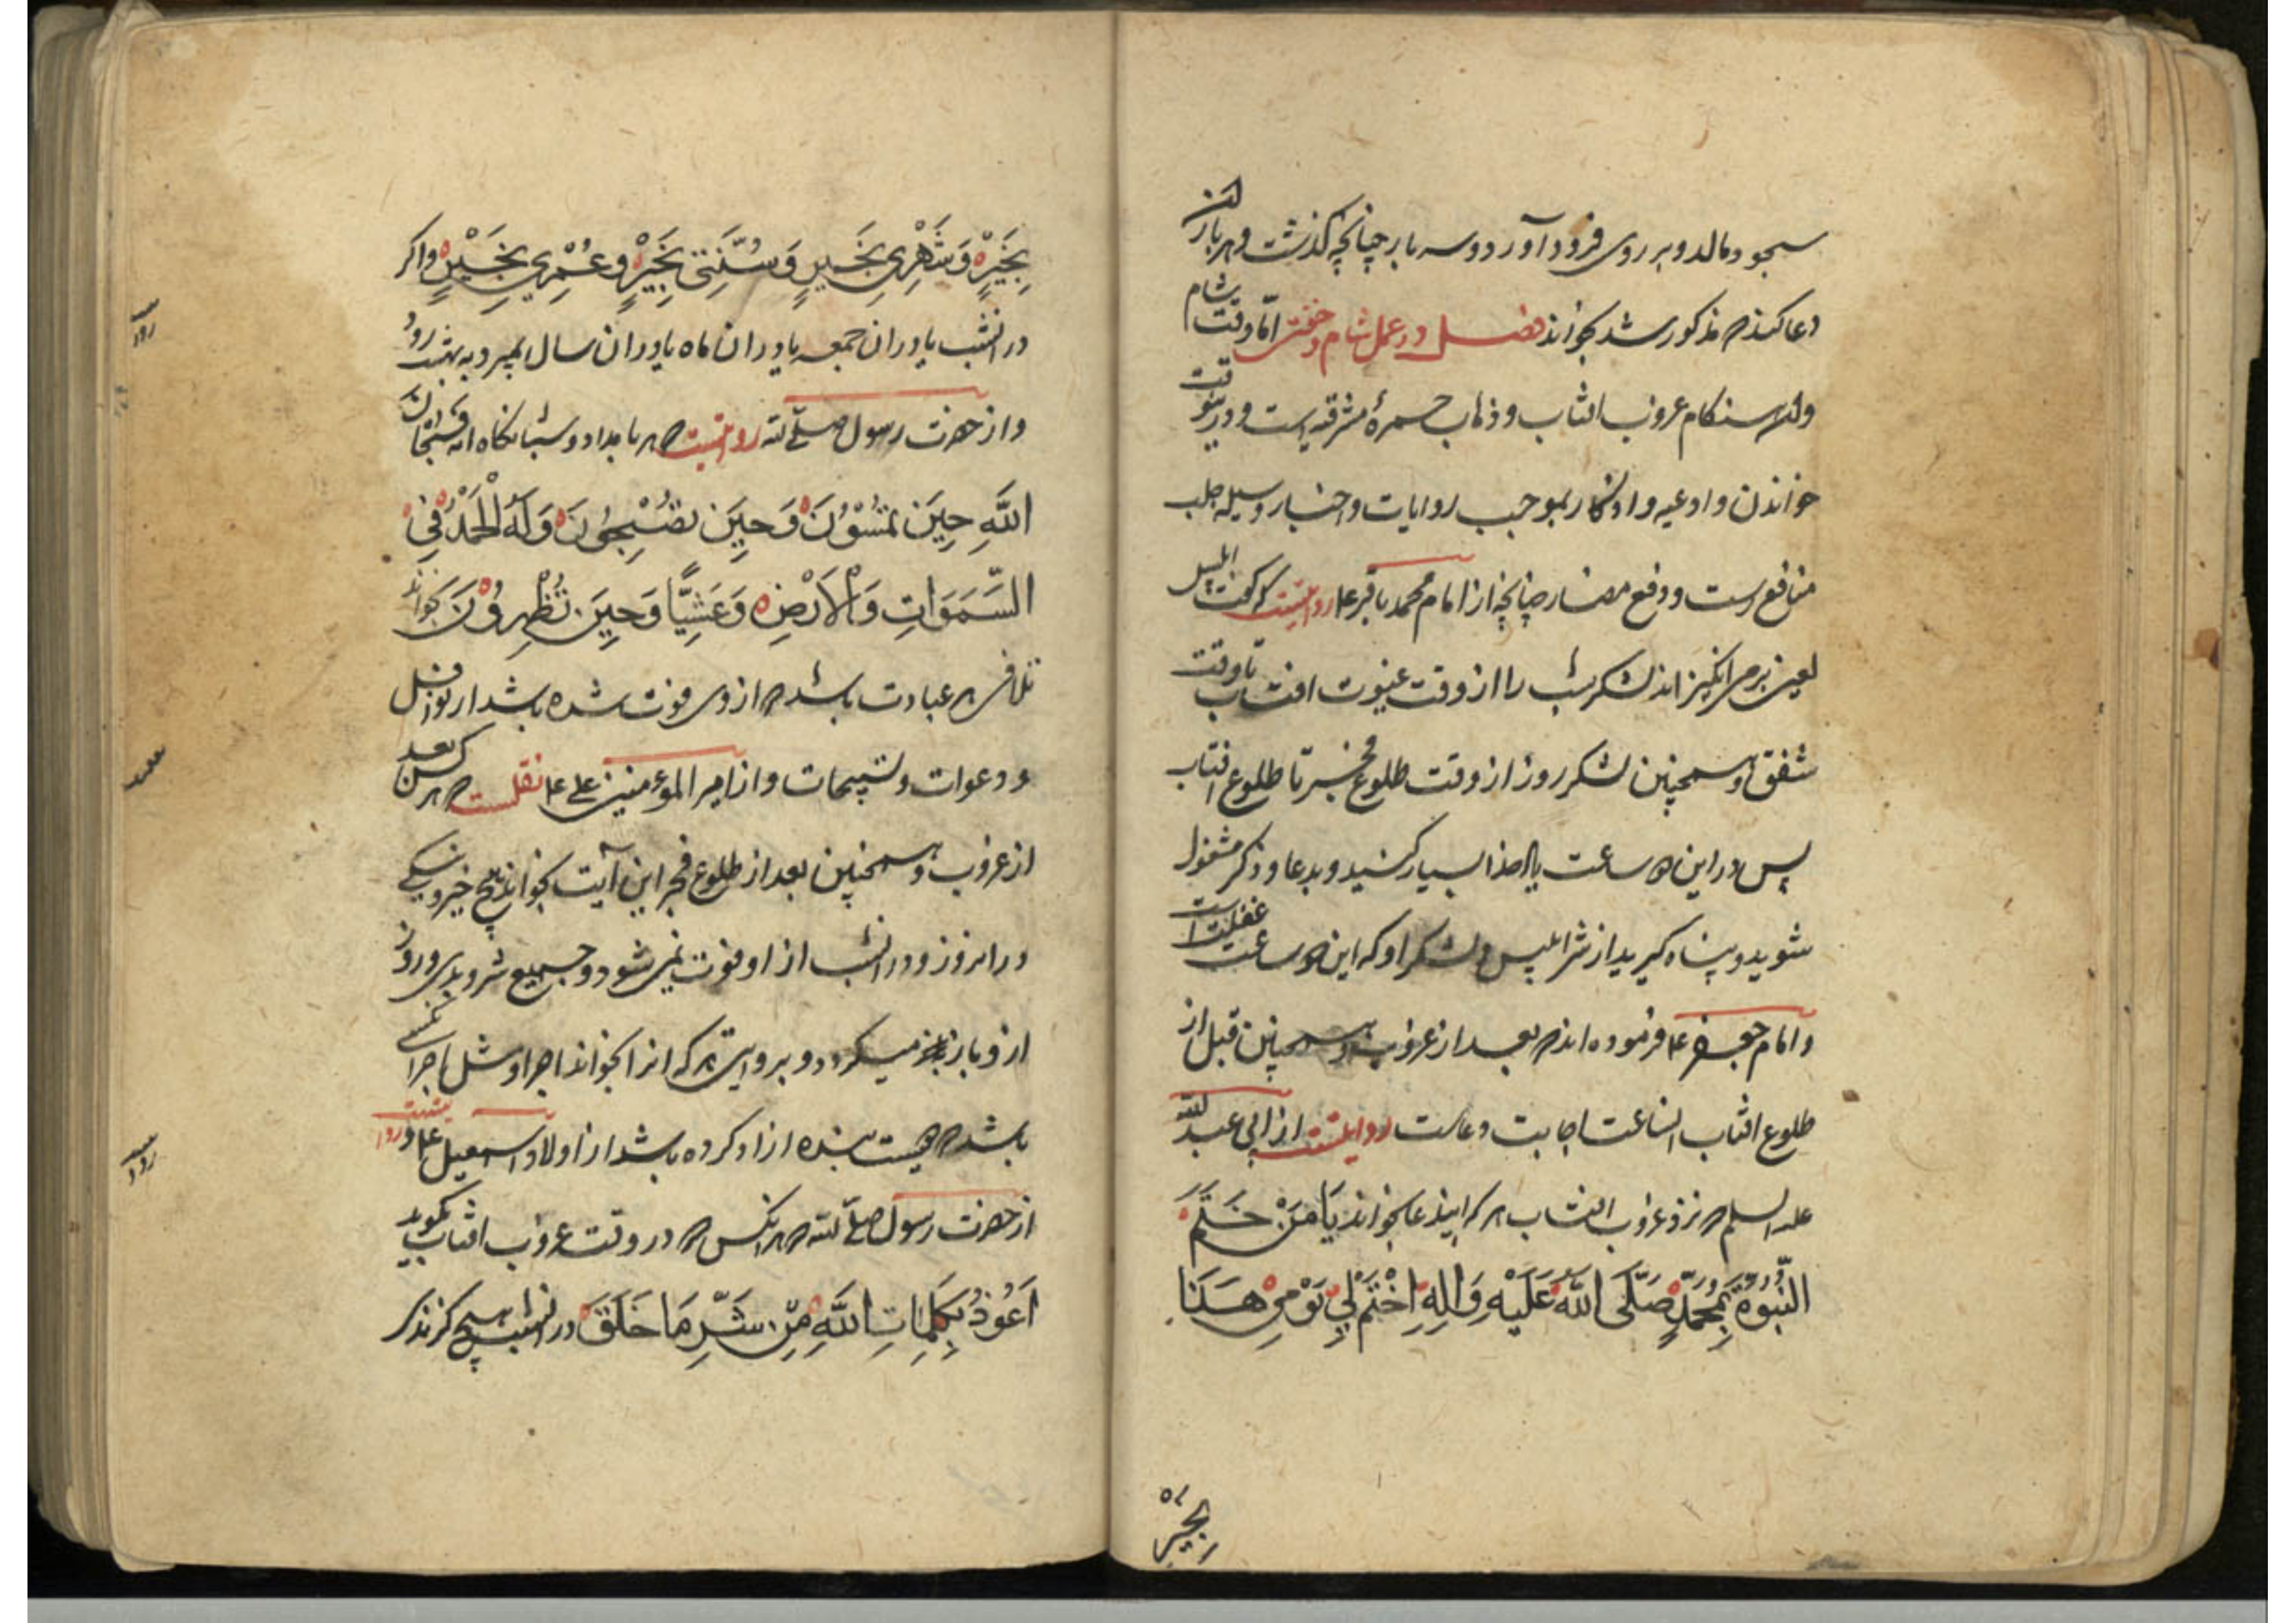 سجود مالد و بر روی فرود آورد دو سه بار چنانچه گذشت و هر بار این
دعا که مذکور شد بخواند فصل در عمل شام و خفتن اما وقت شام
هنگام غروب افتاب و ذهاب حمرهٔ مشرقیه است و در ینوقت
خواندن ادعیه و اذکار بموجب روایات و اخبار وسیله جلب
منافع است و دفع مضار چنانچه از امام محمد باقر ع روایتست که گفت ابلیس
لعین بر می انگیزاند لشکر شب را از وقت غیبوبت افتاب تا وقت
شفق و همچنین لشکر روز از وقت طلوع فجر تا طلوع افتاب
پس در این دو ساعت یاد خدا بسیار کنید و بدعا و ذکر مشغول
شوید و پناه گیرید از شر ابلیس و لشکر او که این دو ساعت غفلت است
و امام جعفر ع فرموده اند که بعد از غروب و همچنین قبل از
طلوع افتاب ساعت اجابت دعاست روایتست از ابی عبد الله
علیه السلم که نزد غروب افتاب هر که ایندعا بخواند یَا مَنْ خَتَمَ
النُّبُوَّةَ بِمُحَمَّدٍ صَلَّى اللَّهُ عَلَيْهِ وَالِهِ اِخْتَمْ لِي يَوْمِي هَذَا
بِخَيْرٍ
بِخَيْرٍ وَشَهْرِي بِخَيْرٍ وَسُنَّتِي بِخَيْرٍ وَعُمْرِي بِخَيْرٍ و اکر
در انشب یا در ان جمعه یا در ان ماه یا در ان سال بمیرد به بهشت رود
و از حضرت رسول صلی الله روایتست که هر بامداد و شبانگاه فَسُبْحَانَ
اللَّهِ حِينَ تُمْسُوْنَ وَحِينَ تُصْبِحُونَ وَلَهُ الْحَمْدُ فِي
السَّمَوَاتِ وَالْاَرْضِ وَعَشِيًّا وَحِينَ تُظْهِرُوْنَ بخواند
تلافی هر عبادت باشد که از وی فوت شده باشد از نوافل
و دعوات و تسبیحات و از امیر المؤمنین علی ع نقلست که هر کس بعد
از غروب و همچنین بعد از طلوع فجر این آیت بخواند هیچ خیر و نیکی
در انروز و در انشب از او فوت نمی شود و جمیع شر و بدی و روز
از و باز میکردد و بروایتی هر که انرا بخواند اجر او مثل اجر کسی
باشد که بیست بنده ازاد کرده باشد از اولاد اسمعیل ع و روایتست
از حضرت رسول صلی الله که هر انکس که در وقت غروب افتاب بگوید
اَعُوذُ بِكَلِمَاتِ اللَّهِ مِنْ شَرِّ مَا خَلَقَ در انشب هیچ گزندی